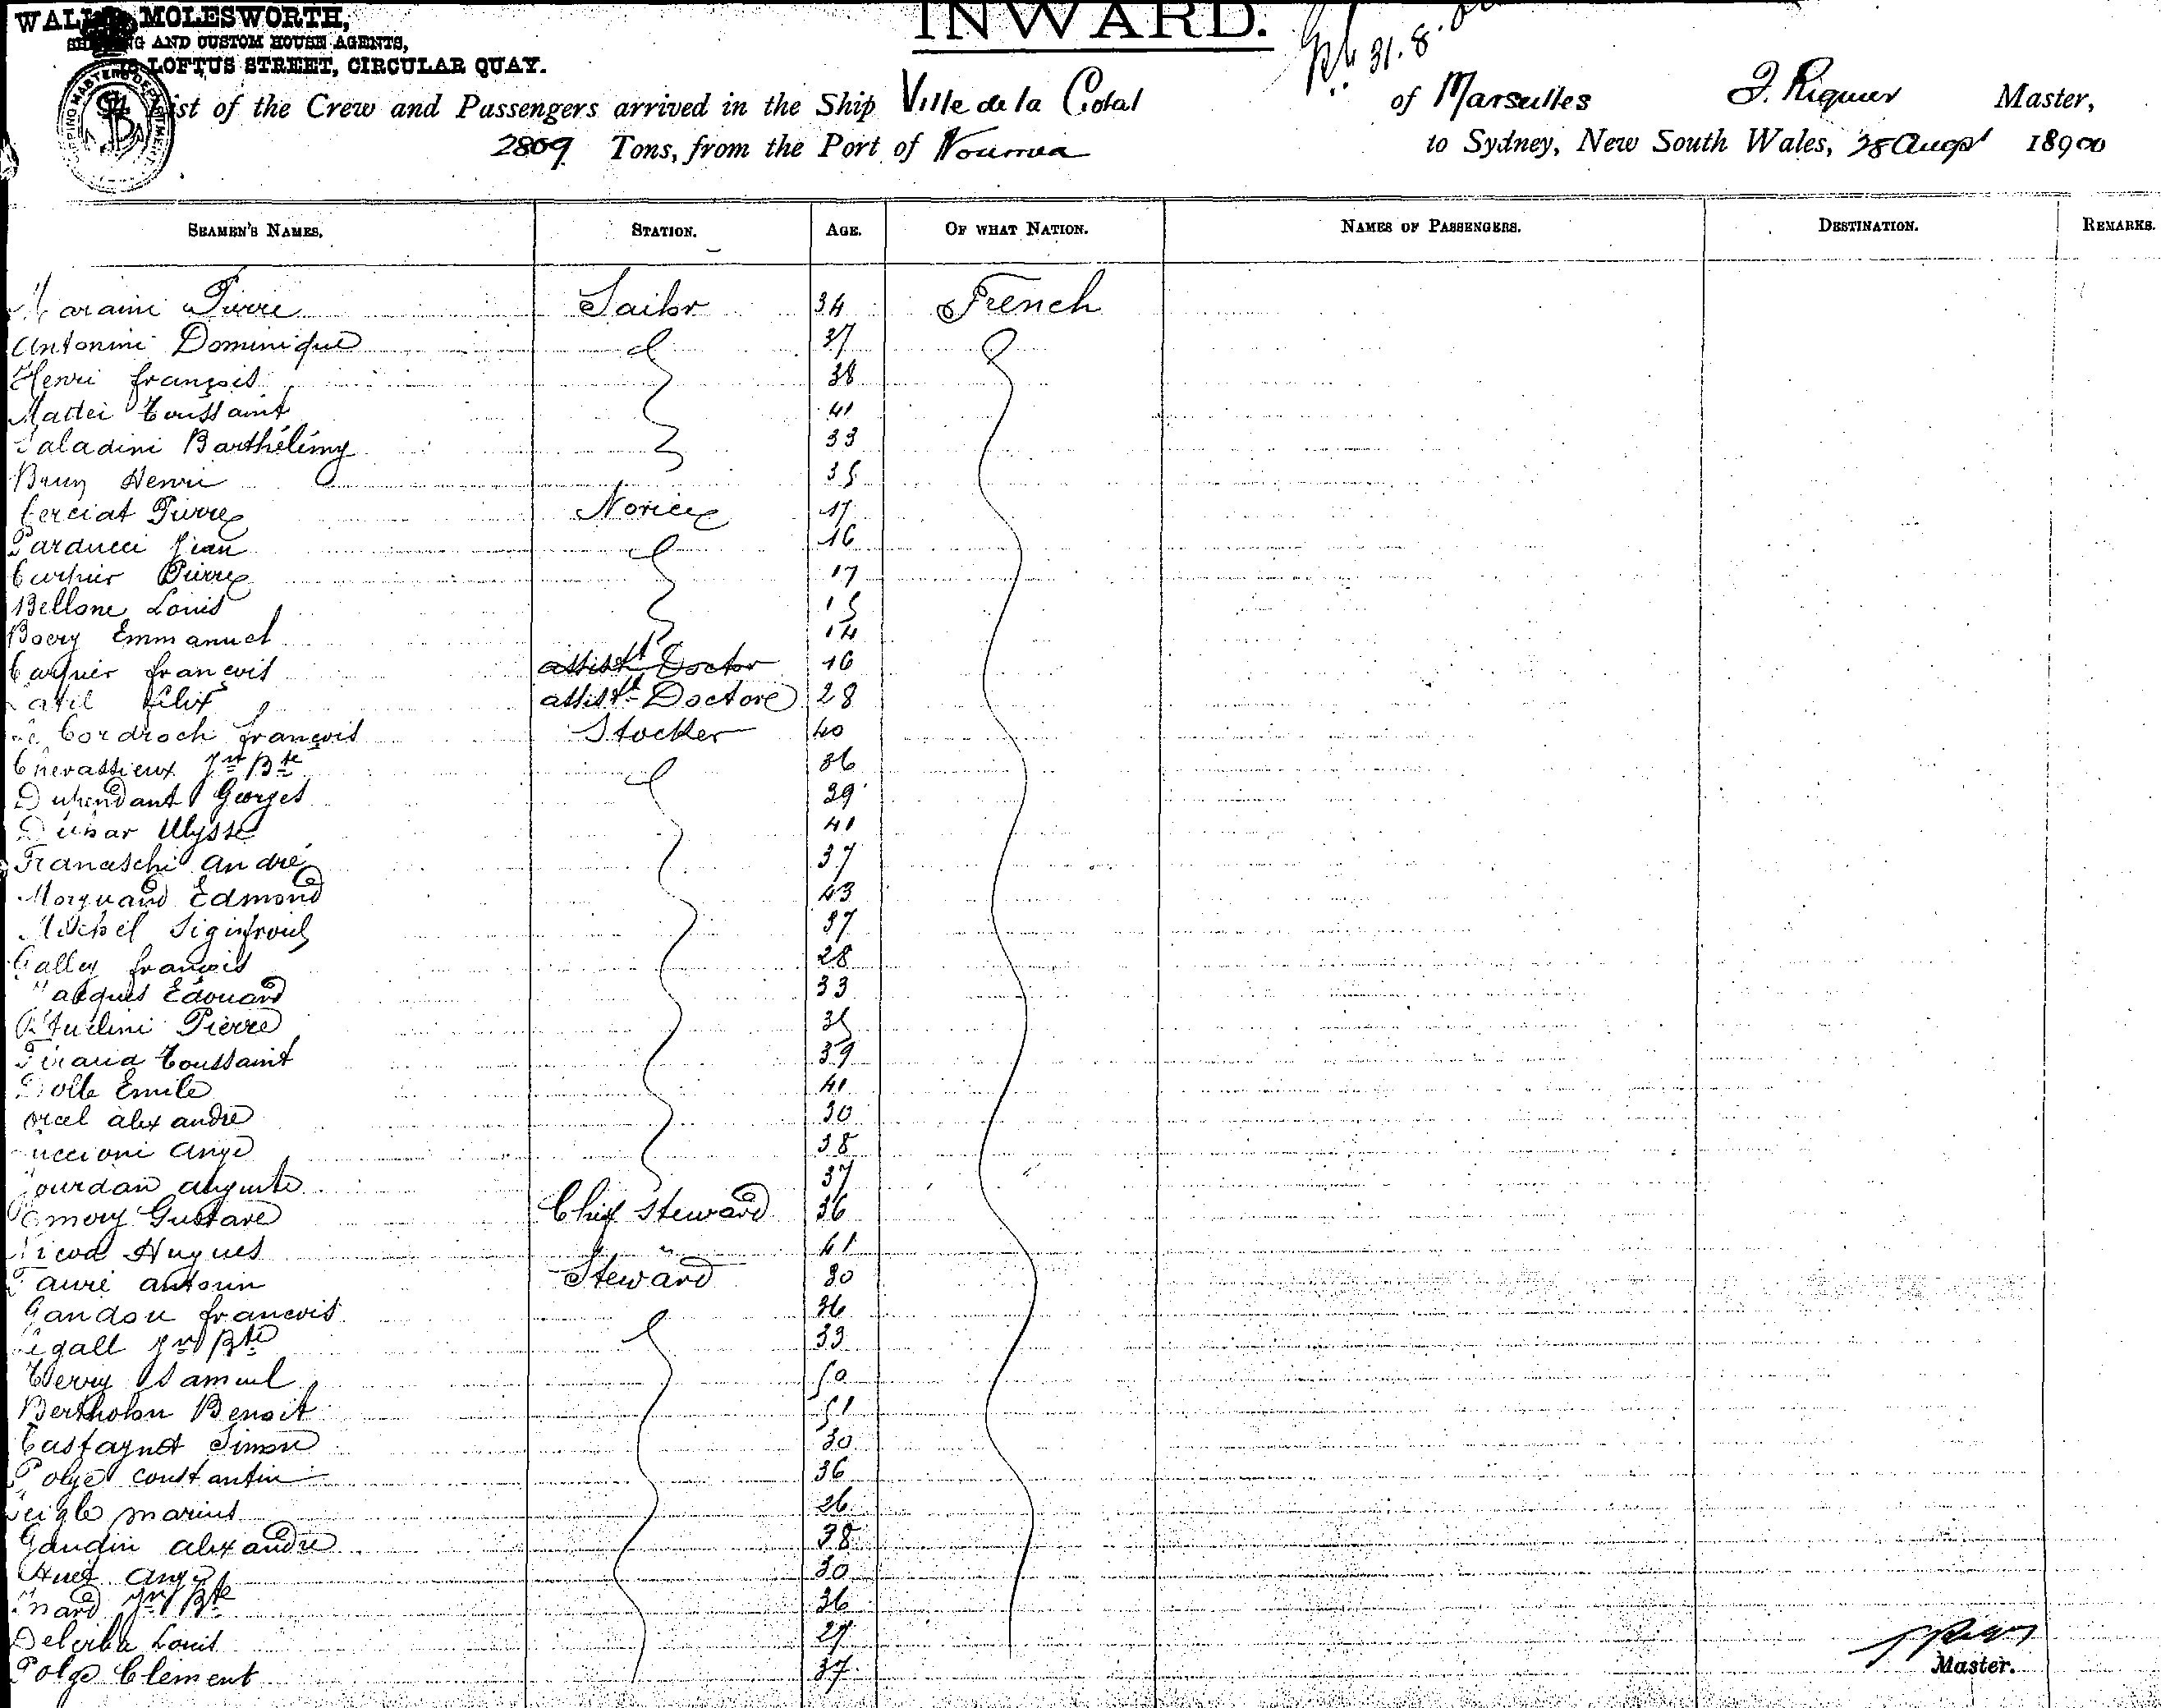 INWARD.
MOLESWORTH,
AND CUSTOM HOUSE AGENTS,
LOFTUS STREET, CIRCULAR QUAY.
31.8.
List of the Crew and Passengers arrived in the Ship Ville de la Ciotat of Marseilles J. Riquier Master,
2809 Tons, from the Port of Noumea to Sydney, New South Wales, 28 Augst 1900
SEAMEN'S NAMES. STATION. AGE. OF WHAT NATION. NAMES OF PASSENGERS. DESTINATION. REMARKS.
Pierre Sailor 34 French
Antonini Dominique 37
Henri françois 38
Mattei Toussaint 41
Saladini Barthélémy 33
Henri 35
Cerciat Pierre Novice 17
Parducci Jean 16
Pierre 17
Bellone Louis 15
Boery Emmanuel 14
françois assistt Doctor 16
félix assistt Doctore 28
Le Cordroch françois Stocker 40
Chevassieux Jn Bte 36
Georges 39
Ulysse 41
Franceschi andré 37
Edmond 43
Michel 37
Galley françois 28
Jacques Edouard 33
Pierre 35
Toussaint 39
Emile 41
alexandre 30
ange 38
Jourdan auguste 37
Gustave Chief Steward 36
Hugues " " 41
Faure antonin Steward 30
Gandou françois 36
Jn Bte 33
Samuel 50
Bertholon Benoit 51
Castagnet Simon 30
Polge constantin 36
marius 26
Gaudin alexandre 38
Huet ange 30
Jn Bte 36
Louis 27
Polge Clement 37
Master.